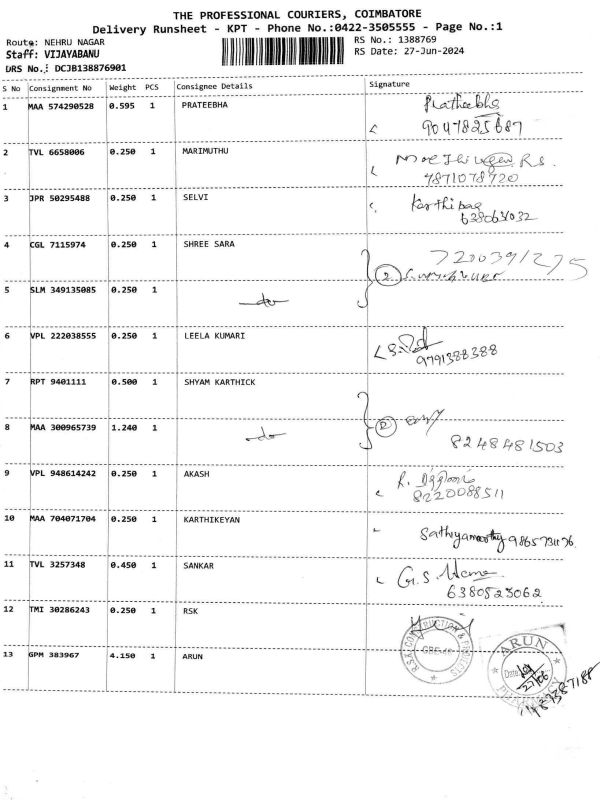 THE PROFESSIONAL COURIERS, COIMBATORE
Delivery Runsheet - KPT - Phone No.:0422-3505555 - Page No.:1
Route: NEHRU NAGAR RS No.: 1388769
Staff: VIJAYABANU RS Date: 27-Jun-2024
DRS No.: DCJB138876901
S No Consignment No Weight PCS Consignee Details Signature
1 MAA 574290528 0.595 1 PRATEEBHA Pratheebha
9047825687
2 TVL 6658006 0.250 1 MARIMUTHU
7871078920
3 JPR 50295488 0.250 1 SELVI
638063032
4 CGL 7115974 0.250 1 SHREE SARA 7200391275
2
5 SLM 349135085 0.250 1 do
6 VPL 222038555 0.250 1 LEELA KUMARI
9791388388
7 RPT 9401111 0.500 1 SHYAM KARTHICK
2
8 MAA 300965739 1.240 1 do 8248481503
9 VPL 948614242 0.250 1 AKASH
8220088511
10 MAA 704071704 0.250 1 KARTHIKEYAN
Sathyamoorthy
11 TVL 3257348 0.450 1 SANKAR G.S.
6380523062
12 TMI 30286243 0.250 1 RSK
R.S.K. CONSTRUCTION & PROJECTS
13 GPM 383967 4.150 1 ARUN
ARUN
Date
27/06